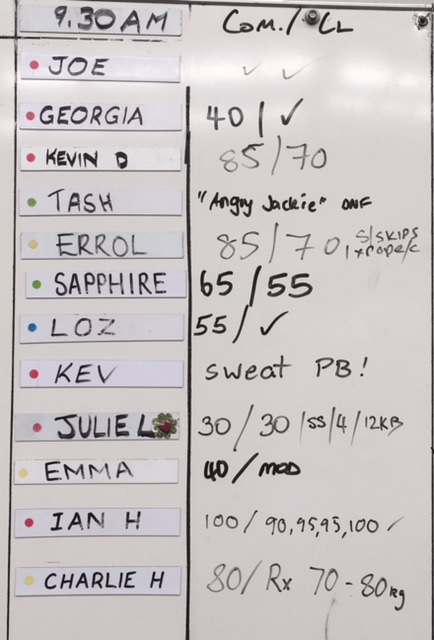 9.30AM Com./CL
JOE ✓ ✓
GEORGIA 40 / ✓
KEVIN D 85/70
TASH "Angry Jackie" ONF
ERROL 85/70 S/SKIPS
1 x ROPE/C
SAPPHIRE 65/55
LOZ 55/ ✓
KEV sweat PB!
JULIE L 30/30/SS/4/12KB
EMMA 40/MOD
IAN H 100/90,95,95,100 ✓
CHARLIE H 80/Rx 70-80kg